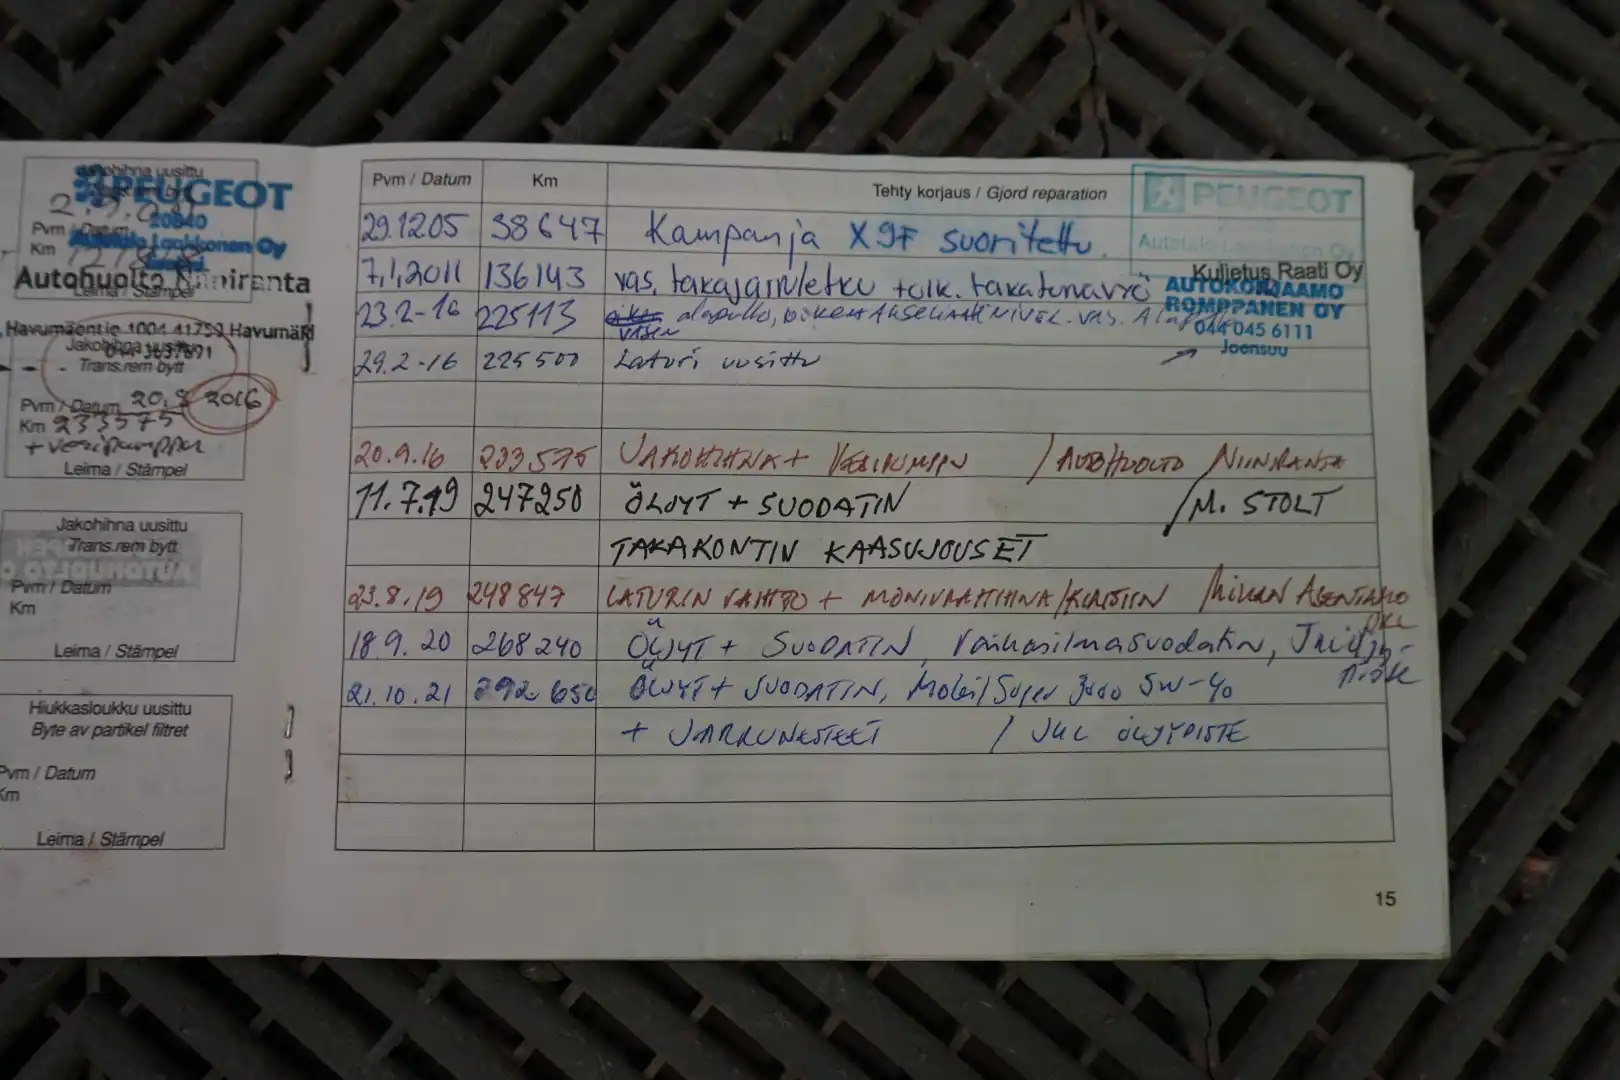 Jakohihna uusittu
PEUGEOT
20840
Pvm / Datum
Km
Autotalo Laakkonen Oy
Autohuolto Niiniranta
Leima / Stämpel
Havumäentie 1004 41750 Havumäki
Jakohihna uusittu
Trans.rem bytt
Pvm / Datum 20.9 2016
Km 233575
+ vesipumppu
Leima / Stämpel
Jakohihna uusittu
Trans.rem bytt
Pvm / Datum
Km
Leima / Stämpel
Hiukkasloukku uusittu
Byte av partikel filtret
Pvm / Datum
Km
Leima / Stämpel
Pvm / Datum Km Tehty korjaus / Gjord reparation
PEUGEOT
Autotalo Laakkonen Oy
29.1205 38647 Kampanja X9F suoritettu.
Kuljetus Raati Oy
7.1.2011 136143 vas. takajarruletku + oik. takatunavyö
AUTOKORJAAMO
ROMPPANEN OY
044 045 6111
Joensuu
23.2-16 225113 alapallo, oikea VAS.
VASEN
29.2-16 225500 Laturi uusittu
20.9.16 233575 JAKOHIHNA + VESIPUMPPU / AUTOHUOLTO NIINIRANTA
11.7.19 247250 ÖLJYT + SUODATIN / M. STOLT
TAKAKONTIN KAASUJOUSET
23.8.19 248847 LATURIN VAIHTO + MONIURAHIHNA/KIRISTIN
18.9.20 268240 ÖLJYT + SUODATIN, raitisilmasuodatin,
21.10.21 292650 ÖLJYT + SUODATIN, Mobil Super 3000 5W-40
+ JARRUNESTEET / JKL ÖLJYPISTE
15